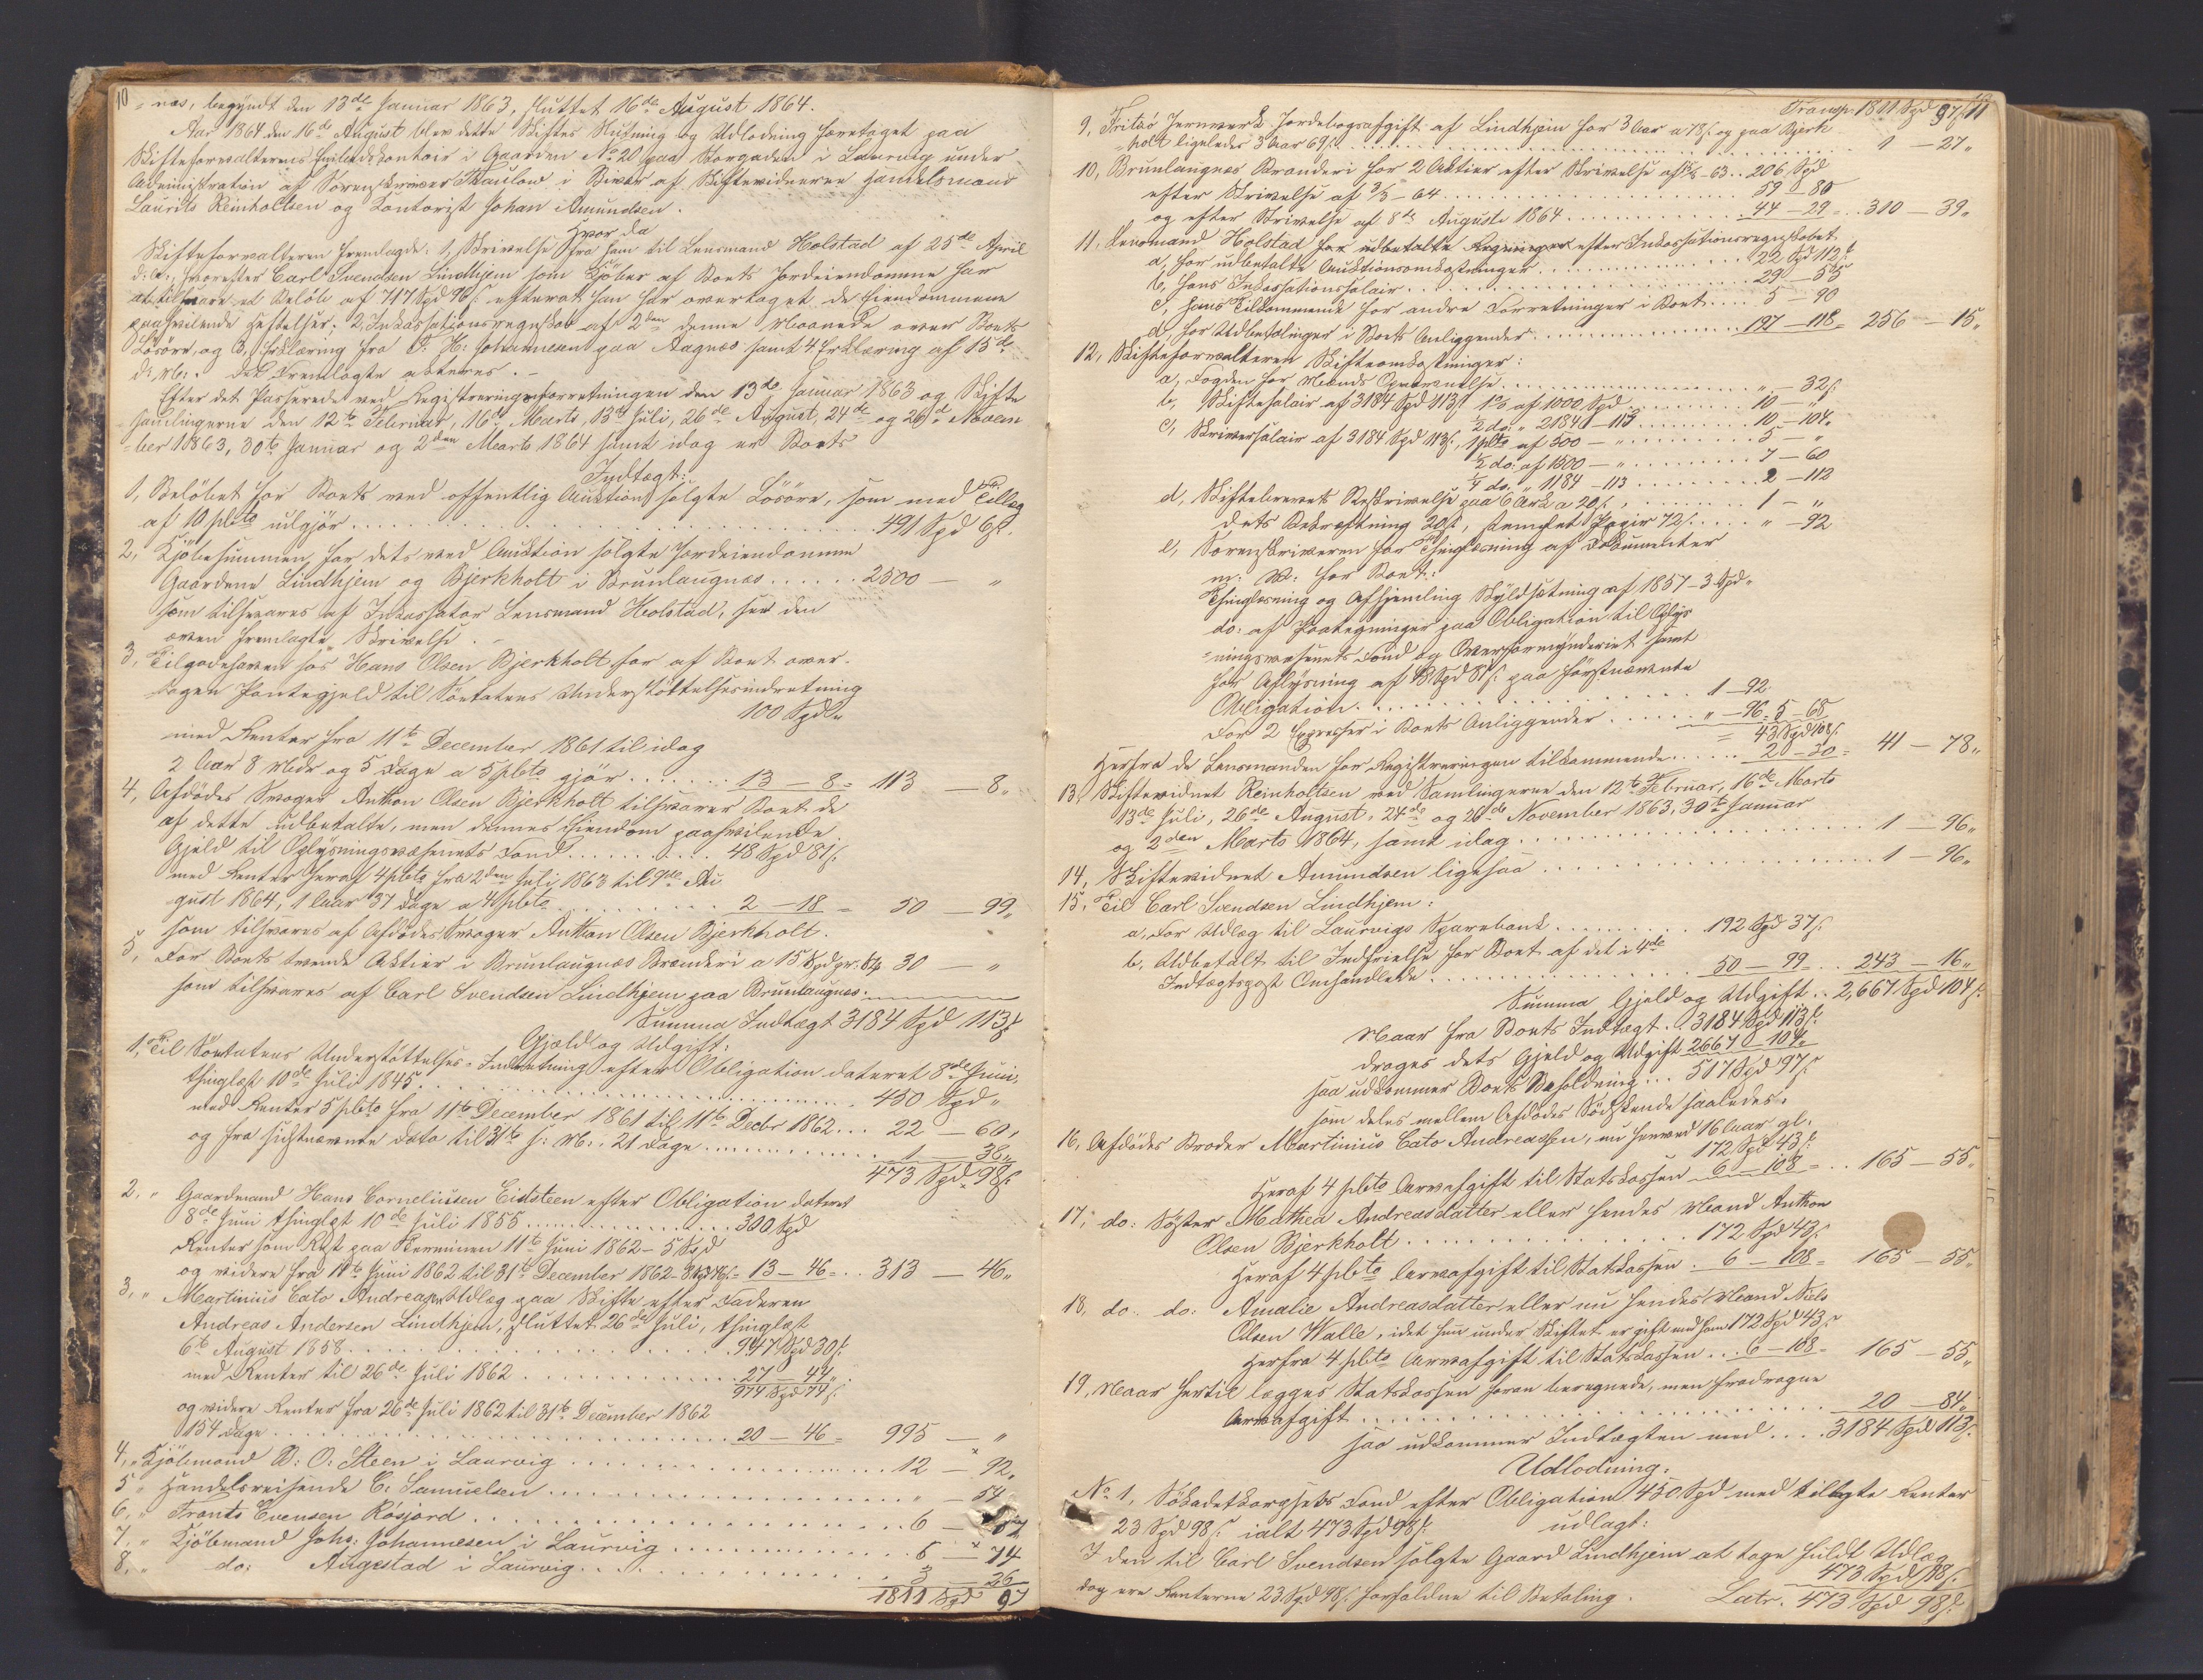 10
næs, begyndt den 13de Januar 1863, sluttet 16de August 1864.
Aar 1864 den 16de August blev dette Skiftes Slutning og Udlodning foretaget paa
Skifteforvalterens Embedskontoir i Gaarden No 20 paa Storgaden i Laurvig under
Administration af Sorenskriver Thaulow i Bivær af Skiftevidnerne Handelsmand
Laurits Reinholtsen og Kontorist Johan Amundsen.
Hvor da
Skifteforvalteren fremlagde: 1, Skrivelse fra ham til Lensmand Holstad af 25de April
d: A:, hvorefter Carl Svendsen Lindhjem som Kjøber af Boets Jordeiendomme har
at tilsvare et Beløb af 717 Spd 96 s efterat han har overtaget de Eiendommene
paahvilende Heftelser; 2, Inkassationsregnskab af 2den denne Maaned over Boets
Løsøre, og 3, Erklæring fra O: H: Johannesen paa Aagnæs samt 4 Erklæring af 15de
d: M:. Det Fremlagte akteres. –
Efter det Passerede ved Registreringsforretningen den 13de Januar 1863 og Skifte
samlingerne den 12te Februar, 16de Marts, 13de Juli, 26de August, 24de og 26de Novem
ber 1863, 30te Januar og 2den Marts 1864 samt idag er Boets
Indtægt:
1, Beløbet for Boets ved offentlig Auktion solgte Løsøre, som med Tillæg
af 10 pCto udgjør . . . 491 Spd 6 s.
2, Kjøbesummen for dets ved Auktion solgte Jordeiendomme
Gaardene Lindhjem og Bjerkholt i Brunlaugnæs . . . 2500 — "
som tilsvares af Inkassator Lensmand Holstad, see den
oven fremlagte Skrivelse. –
3, Tilgodehaven hos Hans Olsen Bjerkholt for af Boet over-
tagen Pantegjeld til Søetatens Understøttelsesindretning
100 Spd "
med Renter fra 11te December 1861 til idag
2 Aar 8 Mdr og 5 Dage a 5 pCto gjør . . . 13 — 8 = 113 — 8 "
4, Afdødes Svoger Anthon Olsen Bjerkholt tilsvarer Boet de
af dette udbetalte, men dennes Eiendom paahvilende
Gjeld til Oplysningsvæsenets Fond . . . 48 Spd 81 s
med Renter heraf 4 pCto fra 2den Juli 1863 til 9de Au
gust 1864, 1 Aar 37 Dage a 4 pCto . . . 2 — 18 = 50 — 99 "
som tilsvares af Afdødes Svoger Anthon Olsen Bjerkholt.
5, For Boets tvende Aktier i Brunlaugnæs Brænderi a 15 Spd pr: Stk 30 — "
som tilsvares af Carl Svendsen Lindhjem paa Brunlaugnæs.
Summa Indtægt 3184 Spd 113 s
Gjæld og Udgift:
1, Til Søetatens Understøttelses-Indretning efter Obligation dateret 8de Juni,
thinglæst 10de Juli 1845 . . . 450 Spd "
med Renter 5 pCto fra 11te December 1861 til 11te Decbr 1862 . . . 22 — 60 "
og fra sidstnævnte Dato til 31te s: M:. 21 Dage . . . 1 — 38 "
473 Spd 98 s
2, " Gaardmand Hans Corneliussen Eidsteen efter Obligation dateret
8de Juni thinglæst 10de Juli 1855 . . . 300 Spd
Renter som Rest paa Terminen 11te Juni 1862 – 5 Spd
og videre fra 11te Juni 1862 til 31te December 1862 8 Spd 46 s = 13 — 46 = . . 313 — 46 "
3, " Martinius Cato Andreasens Udlæg paa Skifte efter Faderen
Andreas Andersen Lindhjem, sluttet 26de Juli, thinglæst
6te August 1858 . . . 947 Spd 30 s
med Renter til 26de Juli 1862 . . . 27 — 44 "
974 Spd 74 s
og videre Renter fra 26de Juli 1862 til 31te December 1862
154 Dage . . . 20 — 46 = 995 — "
4, " Kjøbmand A: O: Steen i Laurvig . . . 12 — 92 "
5 " Handelsreisende C: Samuelsen . . . " — 54
6, " Frants Evensen Røsjord . . . 6 —
7, " Kjøbmand Johs: Johannesen i Laurvig . . . 5 — 74
8, " do: Augestad i Laurvig . . . 3 — 26
1811 Spd 97
Transp. 1811 Spd 97 s
11
9, Fritzø Jernværk Jordebogsafgift af Lindhjem for 3 Aar a 78 s og paa Bjerk
holt ligeledes 3 Aar 69 s . . . 1 — 27 "
10, Brunlaugnæs Brænderi for 2 Aktier efter Skrivelse af -63 . . 206 Spd
efter Skrivelse af 3/3 – 64 . . . 59 – 80
og efter Skrivelse af 8de August 1864 . . . 44 – 29 = . . 310 — 39 "
11, Lensmand Holstad for udbetalte Regninger efter Inkassationsregnskabet.
a, for udbetalte Auktionsomkostninger . . . 22 Spd 112 s
b, hans Inkassationssalair . . . 29 – 55
c, hans Tilkommende for andre Forretninger i Boet . . . 5 – 90
d, for Udbetalinger i Boets Anliggender . . . 197 — 118 = 256 — 15 "
12, Skifteforvalteren Skifteomkostninger:
a, Fogden for Mænds Opnævnelse . . . " – 32 s
b, Skiftesalair af 3184 Spd 113 s 1% af 1000 Spd . . . 10 – "
1/2 do: " 2184 – 113 . . . 10 – 104 "
c, Skriversalair af 3184 Spd 113 s, 1 pCto af 500 — " . . . 5 – "
1/2 do: af 1500 — " . . . 7 – 60
1/4 do. " 1184 – 113 . . . 2 – 112
d, Skiftebrevets Beskrivelse paa 6 Ark a 20 s . . . 1 – "
dets Bekræftning 20 s, stemplet Papir 72 s . . . " – 92
e, Sorenskriveren for Thinglæsning af Dokumenter
m: V: for Boet:
Thinglæsning og Afhjemling Skyldsætning af 1857 – 3 Spd "
do: af Paategninger paa Obligation til Oplys
ningsvæsenets Fond og Overformynderiet samt
for Aflysning af 48 Spd 81 s paa førstnævnte
Obligation . . . 1 – 92
For 2 Expresser i Boets Anliggender . . . " – 96 = 5 – 68
= 43 Spd 108 s
Herfra de Lensmanden for Registreringen tilkommende . . . 2 – 30 = 41 — 78 "
13, Skiftevidnet Reinholtsen ved Samlingerne den 12te Februar, 16de Marts
13de Juli, 26de August, 24de og 26de November 1863, 30te Januar
og 2den Marts 1864, samt idag . . . 1 — 96 "
14, Skiftevidnet Amundsen ligesaa . . . 1 – 96 "
15, Til Carl Svendsen Lindhjem:
a, For Udlæg til Laurvigs Sparebank . . . 192 Spd 37 s
b, Udbetalt til Indfrielse for Boet af det i 4de
Indtægtspost Omhandlede . . . 50 — 99 = . . 243 — 16 "
Summa Gjeld og Udgift . . 2,667 Spd 104 s
Naar fra Boets Indtægt . . 3184 Spd 113 s
drages dets Gjeld og Udgift 2667 – 104 "
saa udkommer Boets Beholdning . . . 517 Spd 9 s
som deles mellem Afdødes Sødskende saaledes:
16, Afdødes Broder Martinius Cato Andreassen, nu henved 16 Aar gl.
172 Spd 43 s
Heraf 4 pCto Arveafgift til Statskassen 6 – 108 = . . 165 — 55 "
17, do: Søster Mathea Andreasdatter eller hendes Mand Anthon
Olsen Bjerkholt . . . 172 Spd 43 s
Heraf 4 pCto Arveafgift til Statskassen . 6 – 108 = 165 — 55 "
18. do: do: Amalie Andreasdatter eller nu hendes Mand Niels
Olsen Walle, idet hun under Skiftet er gift med ham 172 Spd 43 s
Herfra 4 pCto Arveafgift til Statskassen . . 6 – 108 = 165 — 55 "
19, Naar hertil lægges Statskassen foran beregnede, men fradragne
Arveafgift . . . 20 — 84 "
saa udkommer Indtægten med . . . 3184 Spd 113 s
Udlodning.
No 1, Søkadetkorpsets Fond efter Obligation 450 Spd med tillagte Renter
23 Spd 98 s ialt 473 Spd 98 s udlagt:
I den til Carl Svendsen solgte Gaard Lindhjem at tage fuldt Udlæg
473 Spd 98 s
dog ere Renterne 23 Spd 98 s forfaldne til Betaling. Latr. 473 Spd 98 s